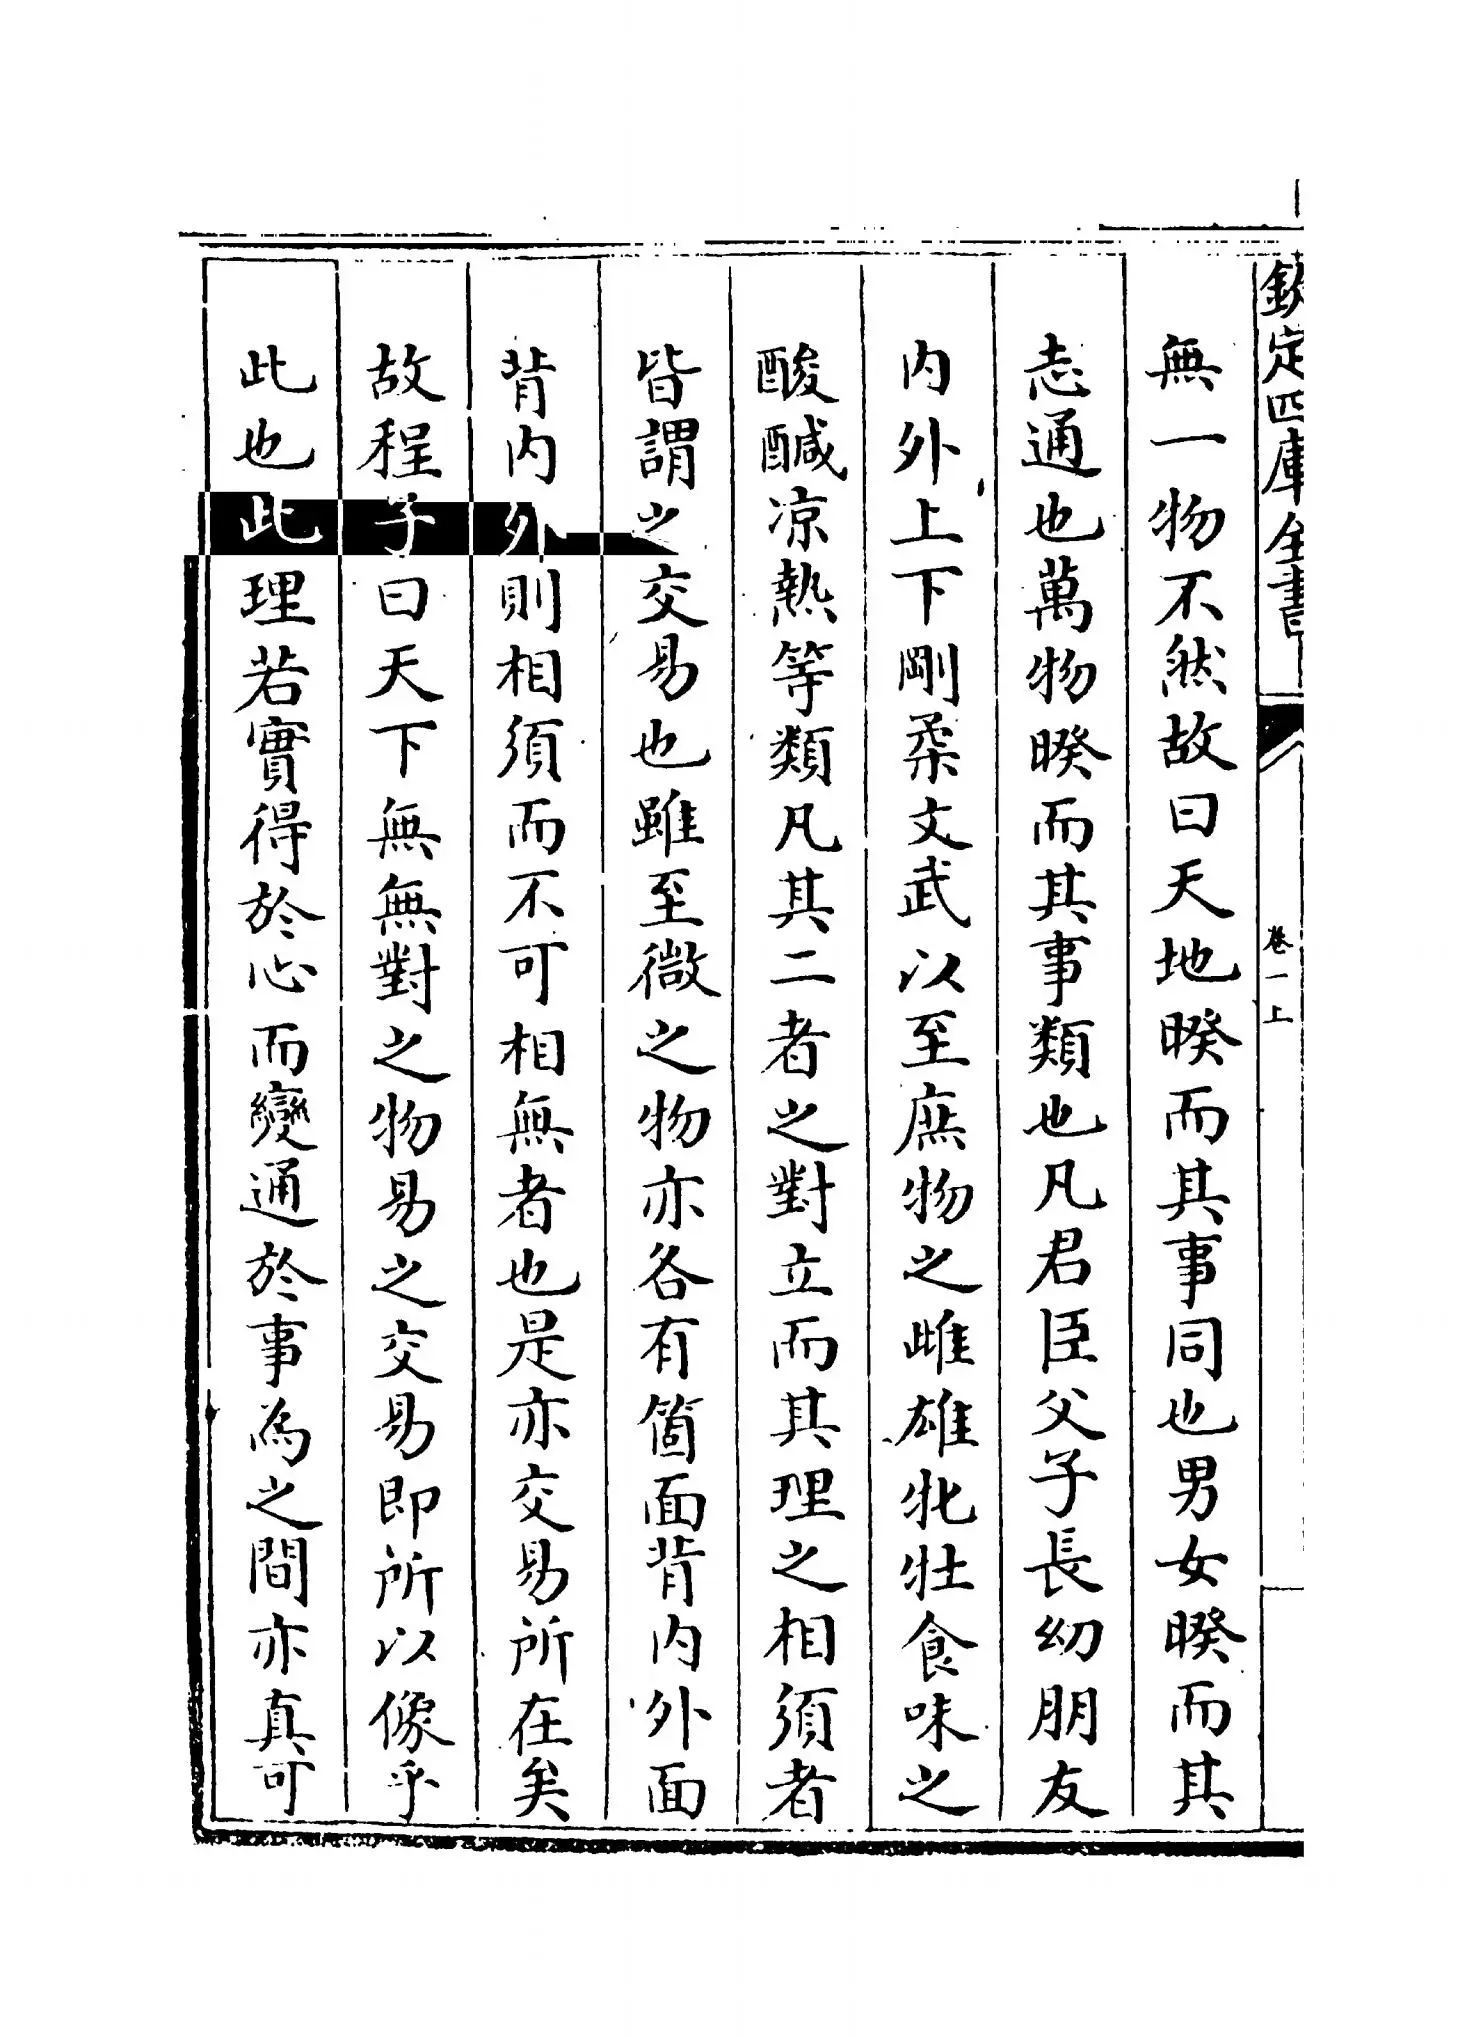 欽定四庫全書
卷一上
無一物不然故曰天地暌而其事同也男女暌而其
志通也萬物暌而其事類也凡君臣父子長幼朋友
内外上下剛柔文武以至庶物之雌雄牝牡食味之
酸醎凉熱等類凡其二者之對立而其理之相須者
皆謂之交易也雖至微之物亦各有箇面背内外面
背内外則相須而不可相無者也是亦交易所在矣
故程子曰天下無無對之物易之交易即所以像乎
此也此理若實得於心而變通於事為之間亦真可